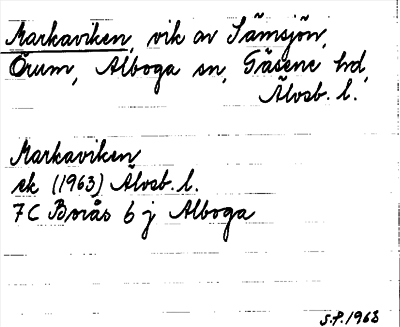 Markaviken, vik av Sämsjön,
Örum, Alboga sn, Gäsene hd,
Älvsb. l.
Markaviken
ek (1963) Älvsb. l.
7C Borås 6 j Alboga
S.P. 1963